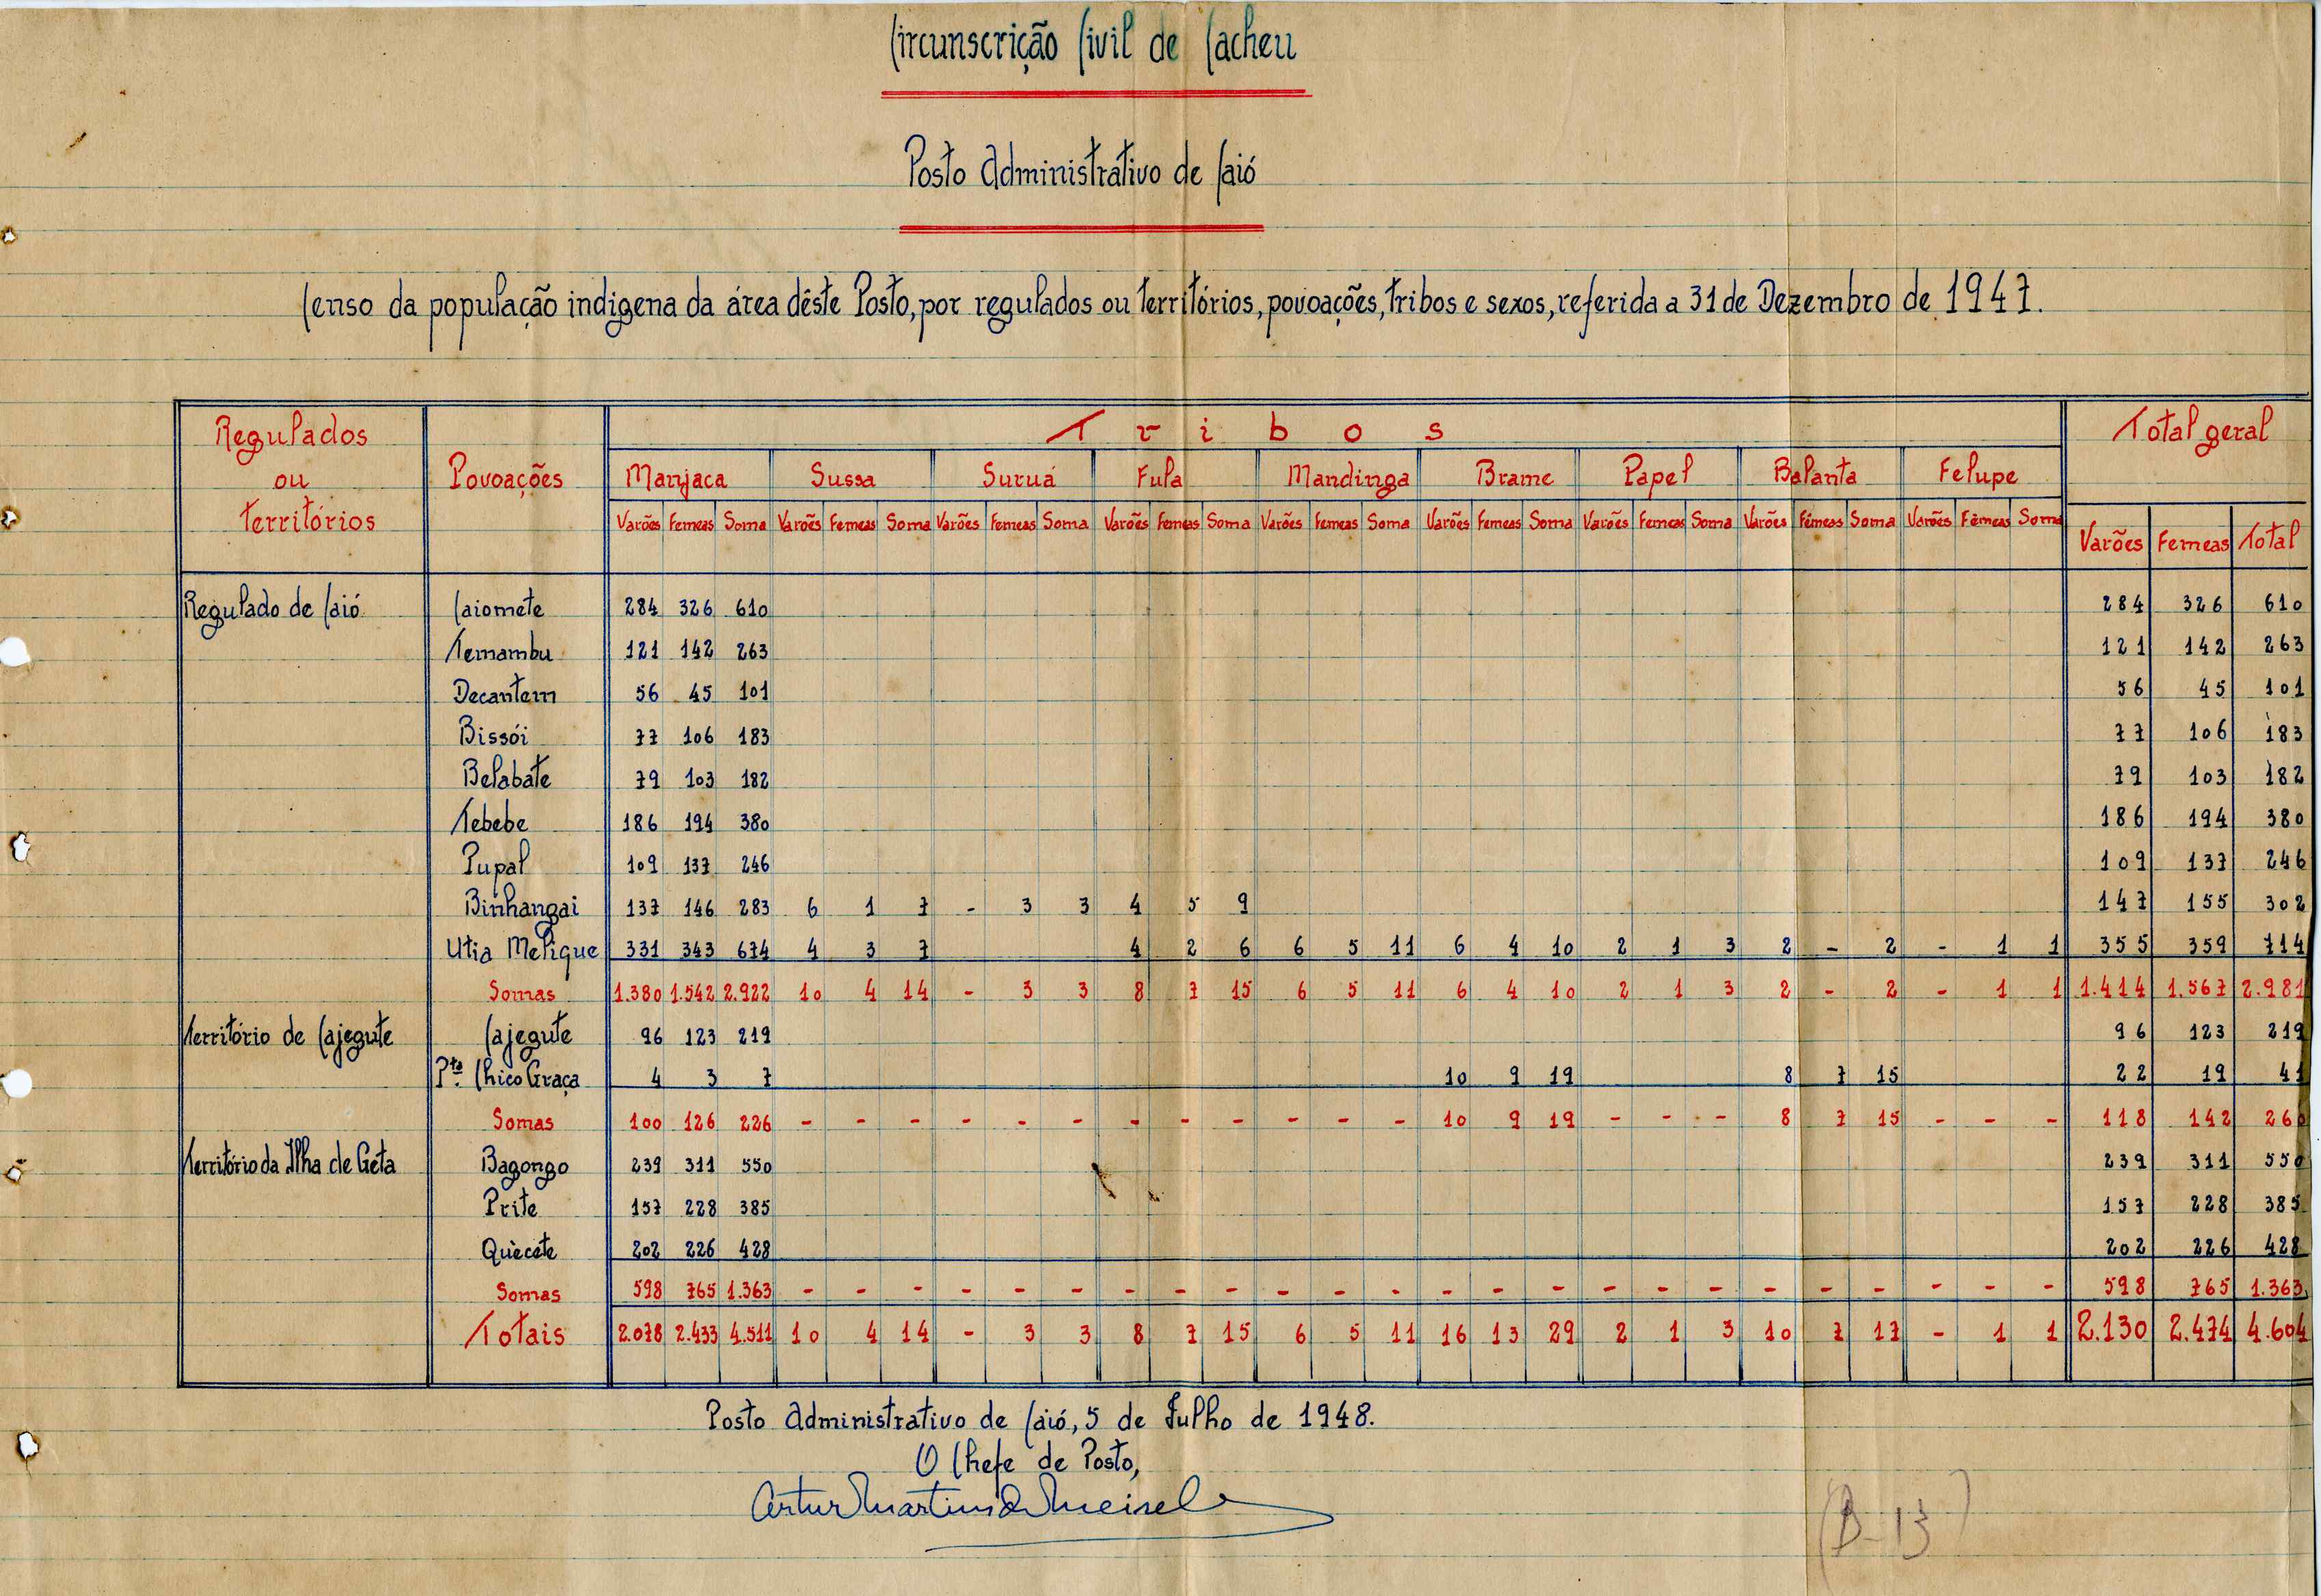 Circunscrição Civil de Cacheu
Posto Administrativo de Caió
Censo da população indigena da área dêste Posto, por regulados ou territórios, povoações, tribos e sexos, referida a 31 de Dezembro de 1947.
Regulados ou territórios Povoações Tribos Total geral
Manjaca Sussa Suruá Fula Mandinga Brame Papel Balanta Felupe
Varões Femeas Soma Varões Femeas Soma Varões Femeas Soma Varões Femeas Soma Varões Femeas Soma Varões Femeas Soma Varões Femeas Soma Varões Fêmeas Soma Varões Fêmeas Soma Varões Femeas Total
Regulado de Caió Caiomete 284 326 610 284 326 610
Temambu 121 142 263 121 142 263
Decantem 56 45 101 56 45 101
Bissói 77 106 183 77 106 183
Belabate 79 103 182 79 103 182
Tebebe 186 194 380 186 194 380
Pupal 109 137 246 109 137 246
Binhangai 137 146 283 6 1 7 - 3 3 4 5 9 147 155 302
Utia Melique 331 343 674 4 3 7 4 2 6 6 5 11 6 4 10 2 1 3 2 - 2 - 1 1 355 359 714
Somas 1.380 1.542 2.922 10 4 14 - 3 3 8 7 15 6 5 11 6 4 10 2 1 3 2 - 2 - 1 1 1.414 1.567 2.981
Território de Cajegute Cajegute 96 123 219 96 123 219
Pta. Chico Graça 4 3 7 10 9 19 8 7 15 22 19 41
Somas 100 126 226 - - - - - - - - - - - - 10 9 19 - - - 8 7 15 - - - 118 142 260
Território da Ilha de Geta Bagongo 239 311 550 239 311 550
Prite 157 228 385 157 228 385
Quècete 202 226 428 202 226 428
Somas 598 765 1.363 - - - - - - - - - - - - - - - - - - - - - - - - 598 765 1.363
Totais 2.078 2.433 4.511 10 4 14 - 3 3 8 7 15 6 5 11 16 13 29 2 1 3 10 7 17 - 1 1 2.130 2.474 4.604
Posto Administrativo de Caió, 5 de Julho de 1948.
O Chefe de Posto,
Artur Martins de Meireles
(B-13)